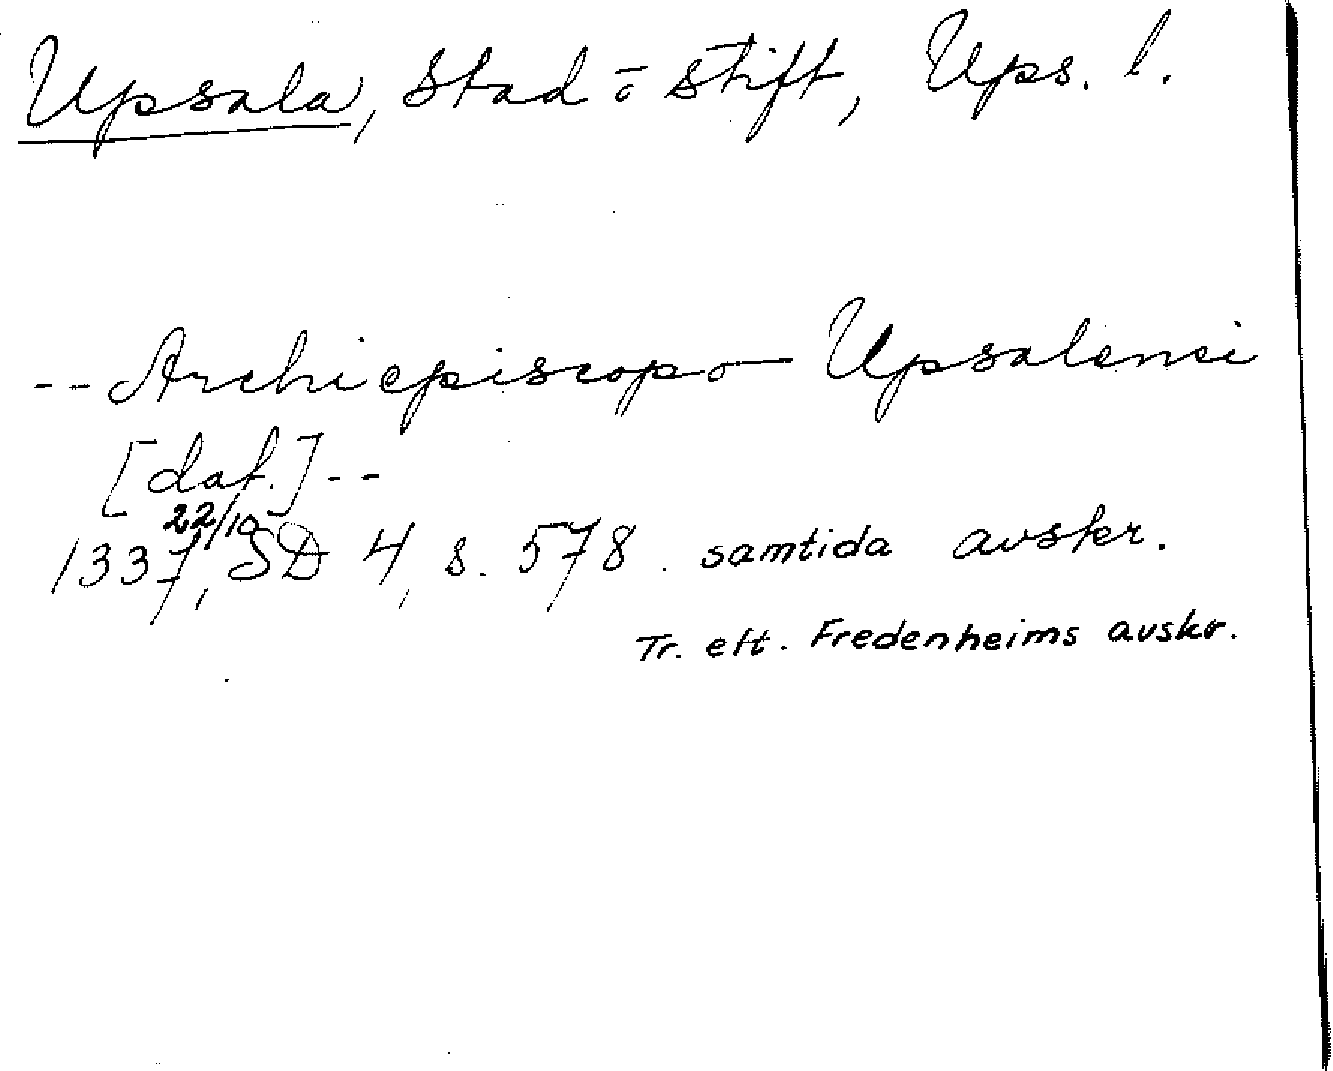 Upsala, stad o stift, Ups. l.
-- Archiepiscopo Upsalensi
[dat.] --
22/10
1337, SD 4, s. 578. samtida avskr.
Tr. eft. Fredenheims avskr.